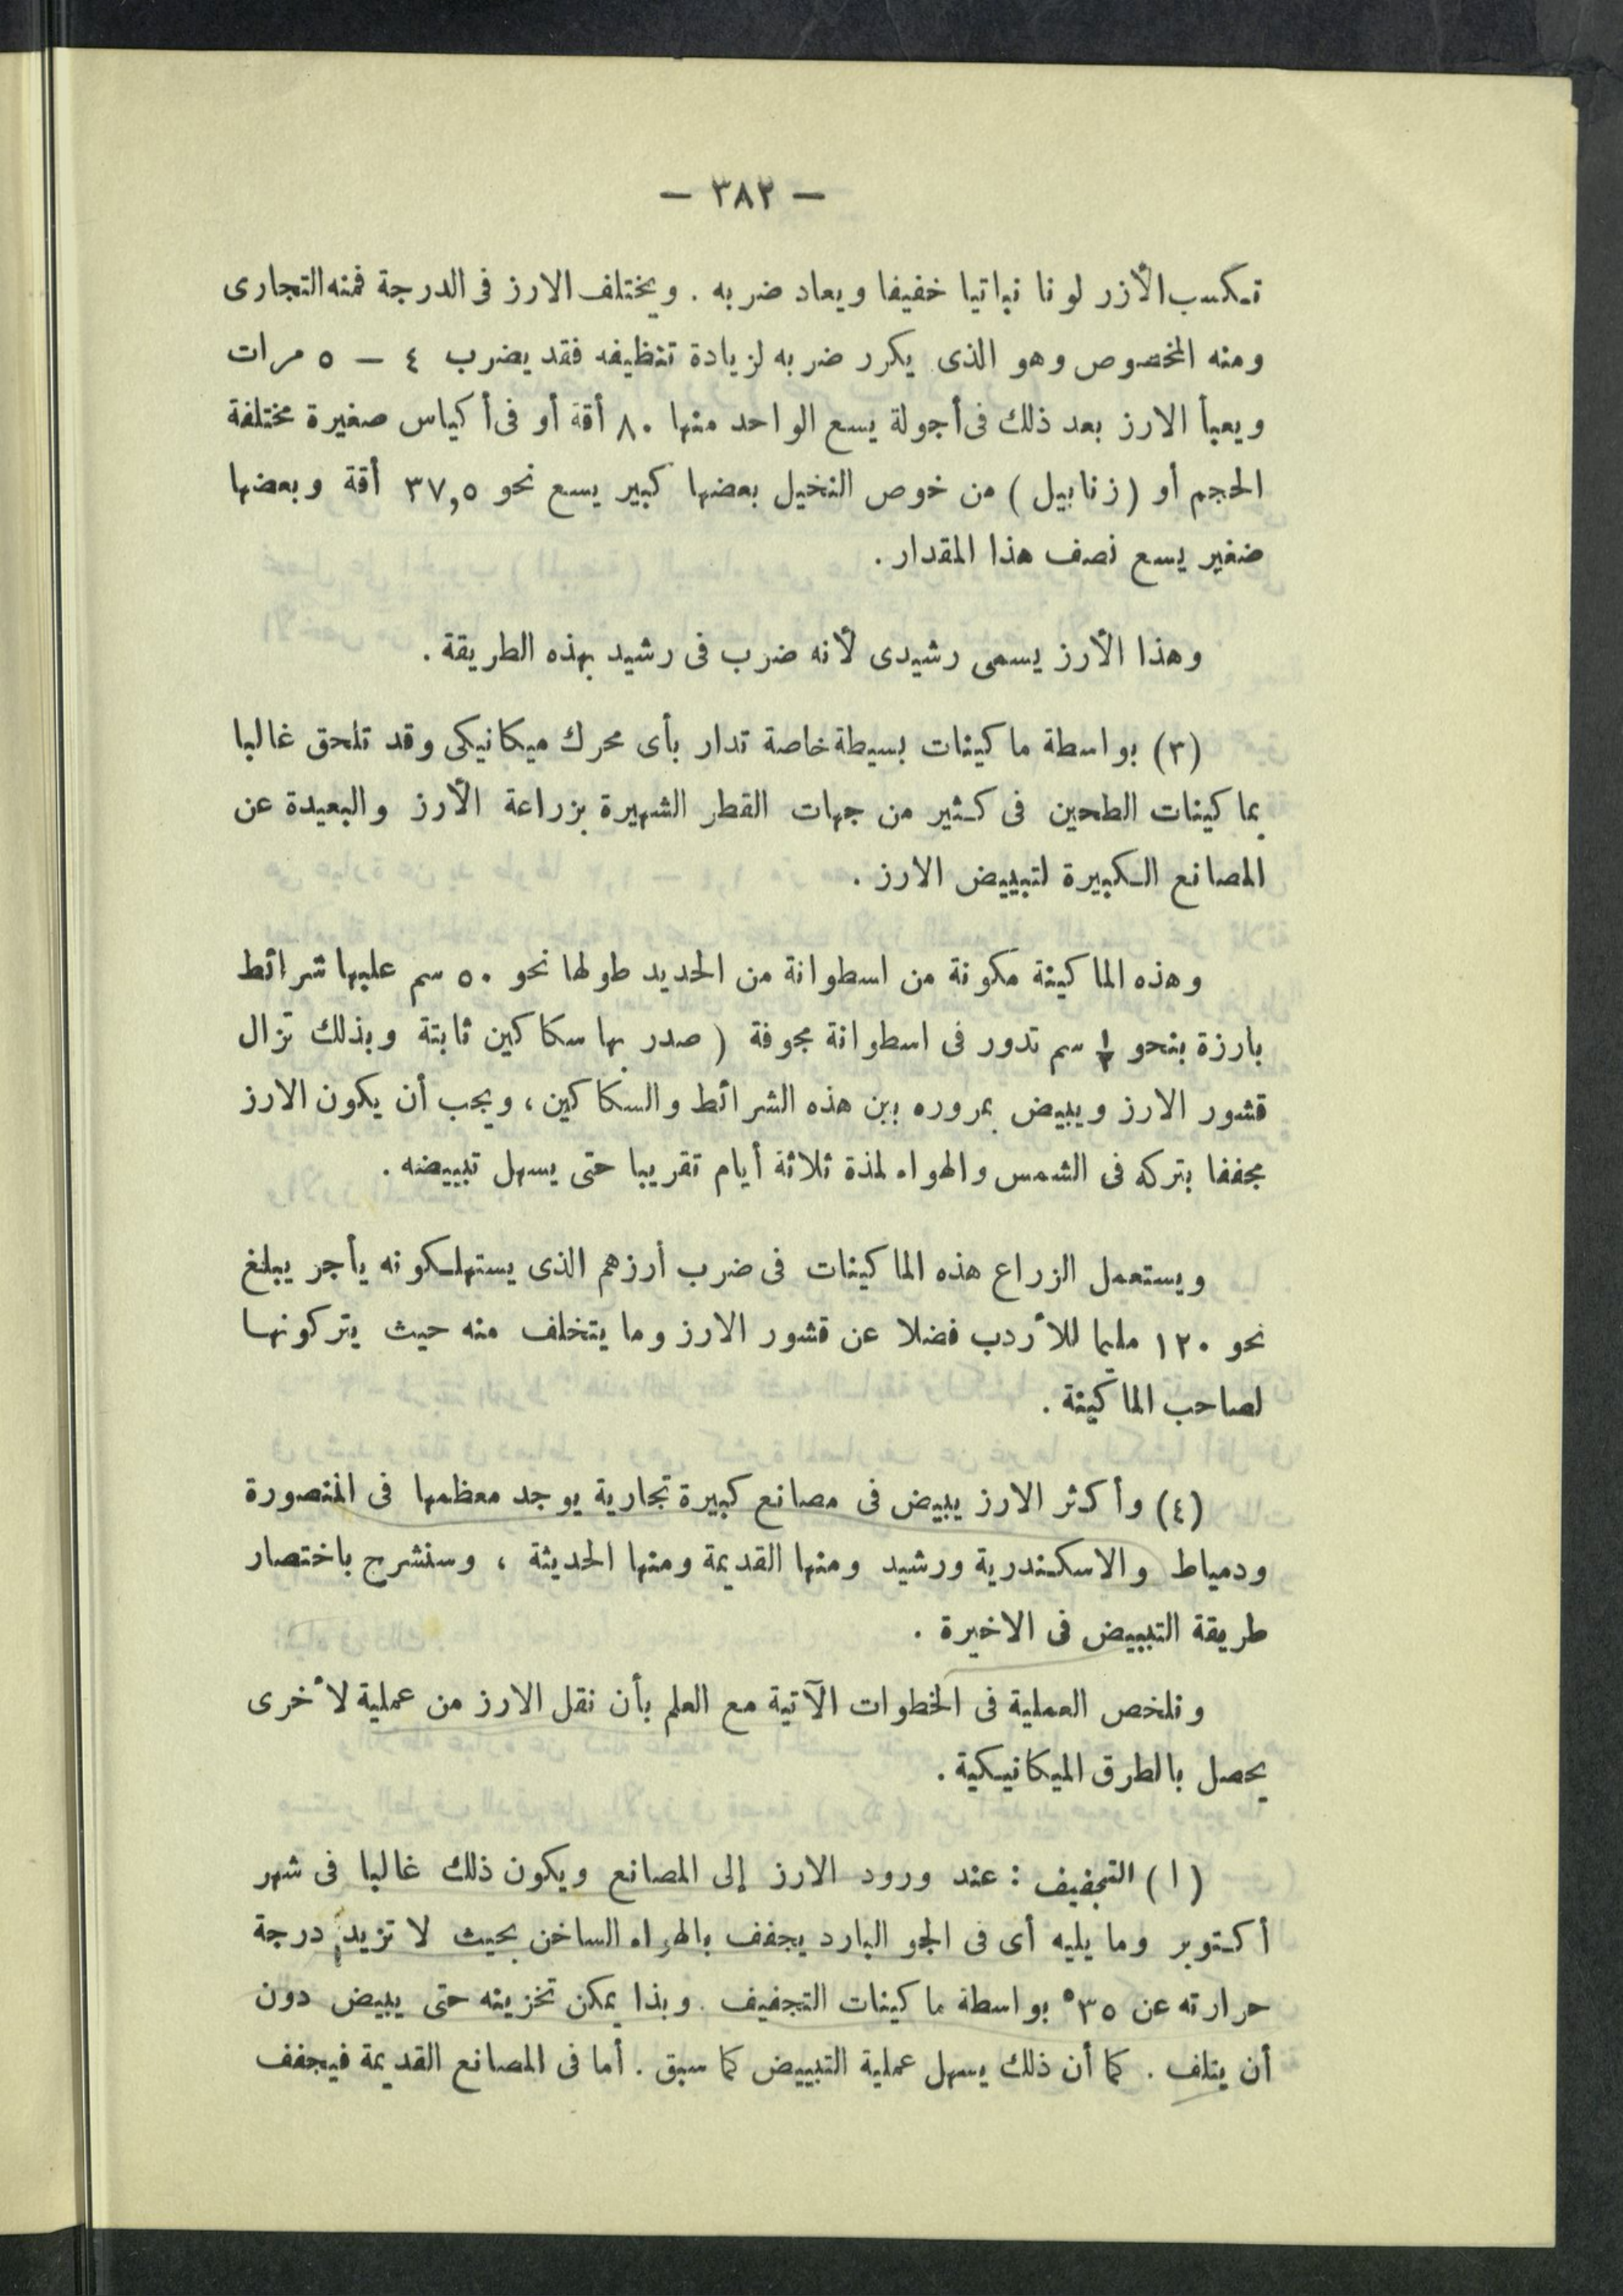 — ٣٨٢ —
تكسب الأزر لونا نباتيا خفيفا ويعاد ضربه . ويختلف الارز فى الدرجة فمنه التجارى
ومنه المخصوص وهو الذى يكرر ضربه لزيادة تنظيفه فقد يضرب ٤ — ٥ مرات
ويعبأ الارز بعد ذلك فى أجولة يسع الواحد منها ٨٠ أقة أو فى أكياس صغيرة مختلفة
الحجم أو (زنابيل) من خوص النخيل بعضها كبير يسع نحو ٣٧,٥ أقة وبعضها
ضغير يسع نصف هذا المقدار .
وهذا الأرز يسمى رشيدى لأنه ضرب فى رشيد بهذه الطريقة .
(٣) بواسطة ماكينات بسيطة خاصة تدار بأى محرك ميكانيكى وقد تلحق غالبا
بماكينات الطحين فى كثير من جهات القطر الشهيرة بزراعة الأرز والبعيدة عن
المصانع الكبيرة لتبييض الارز .
وهذه الماكينة مكونة من اسطوانة من الحديد طولها نحو ٥٠ سم عليها شرائط
بارزة بنحو ½ سم تدور فى اسطوانة مجوفة ( صدر بها سكاكين ثابتة وبذلك تزال
قشور الارز ويبيض بمروره بين هذه الشرائط والسكاكين ، ويجب أن يكون الارز
مجففا بتركه فى الشمس والهواء لمذة ثلاثة أيام تقريبا حتى يسهل تبييضه .
ويستعمل الزراع هذه الماكينات فى ضرب أرزهم الذى يستهلكونه يأجر يبلغ
نحو ١٢٠ مليما للأردب فضلا عن قشور الارز وما يتخلف منه حيث يتركونها
لصاحب الماكينة .
(٤) وأكثر الارز يبيض فى مصانع كبيرة تجارية يوجد معظمها فى المنصورة
ودمياط والاسكندرية ورشيد ومنها القديمة ومنها الحديثة ، وسنشرح باختصار
طريقة التبييض فى الاخيرة .
ونلخص العملية فى الخطوات الآتية مع العلم بأن نقل الارز من عملية لأخرى
يحصل بالطرق الميكانيكية .
(ا) التجفيف : عند ورود الارز إلى المصانع ويكون ذلك غالبا فى شهر
أكتوبر وما يليه أى فى الجو البارد يجفف بالهواء الساخن بحيث لا تزيد درجة
حرارته عن ٣٥° بواسطة ماكينات التجفيف . وبذا يمكن تخزينه حتى يبيض دون
أن يتلف . كما أن ذلك يسهل عملية التبييض كما سبق . أما فى المصانع القديمة فيجفف